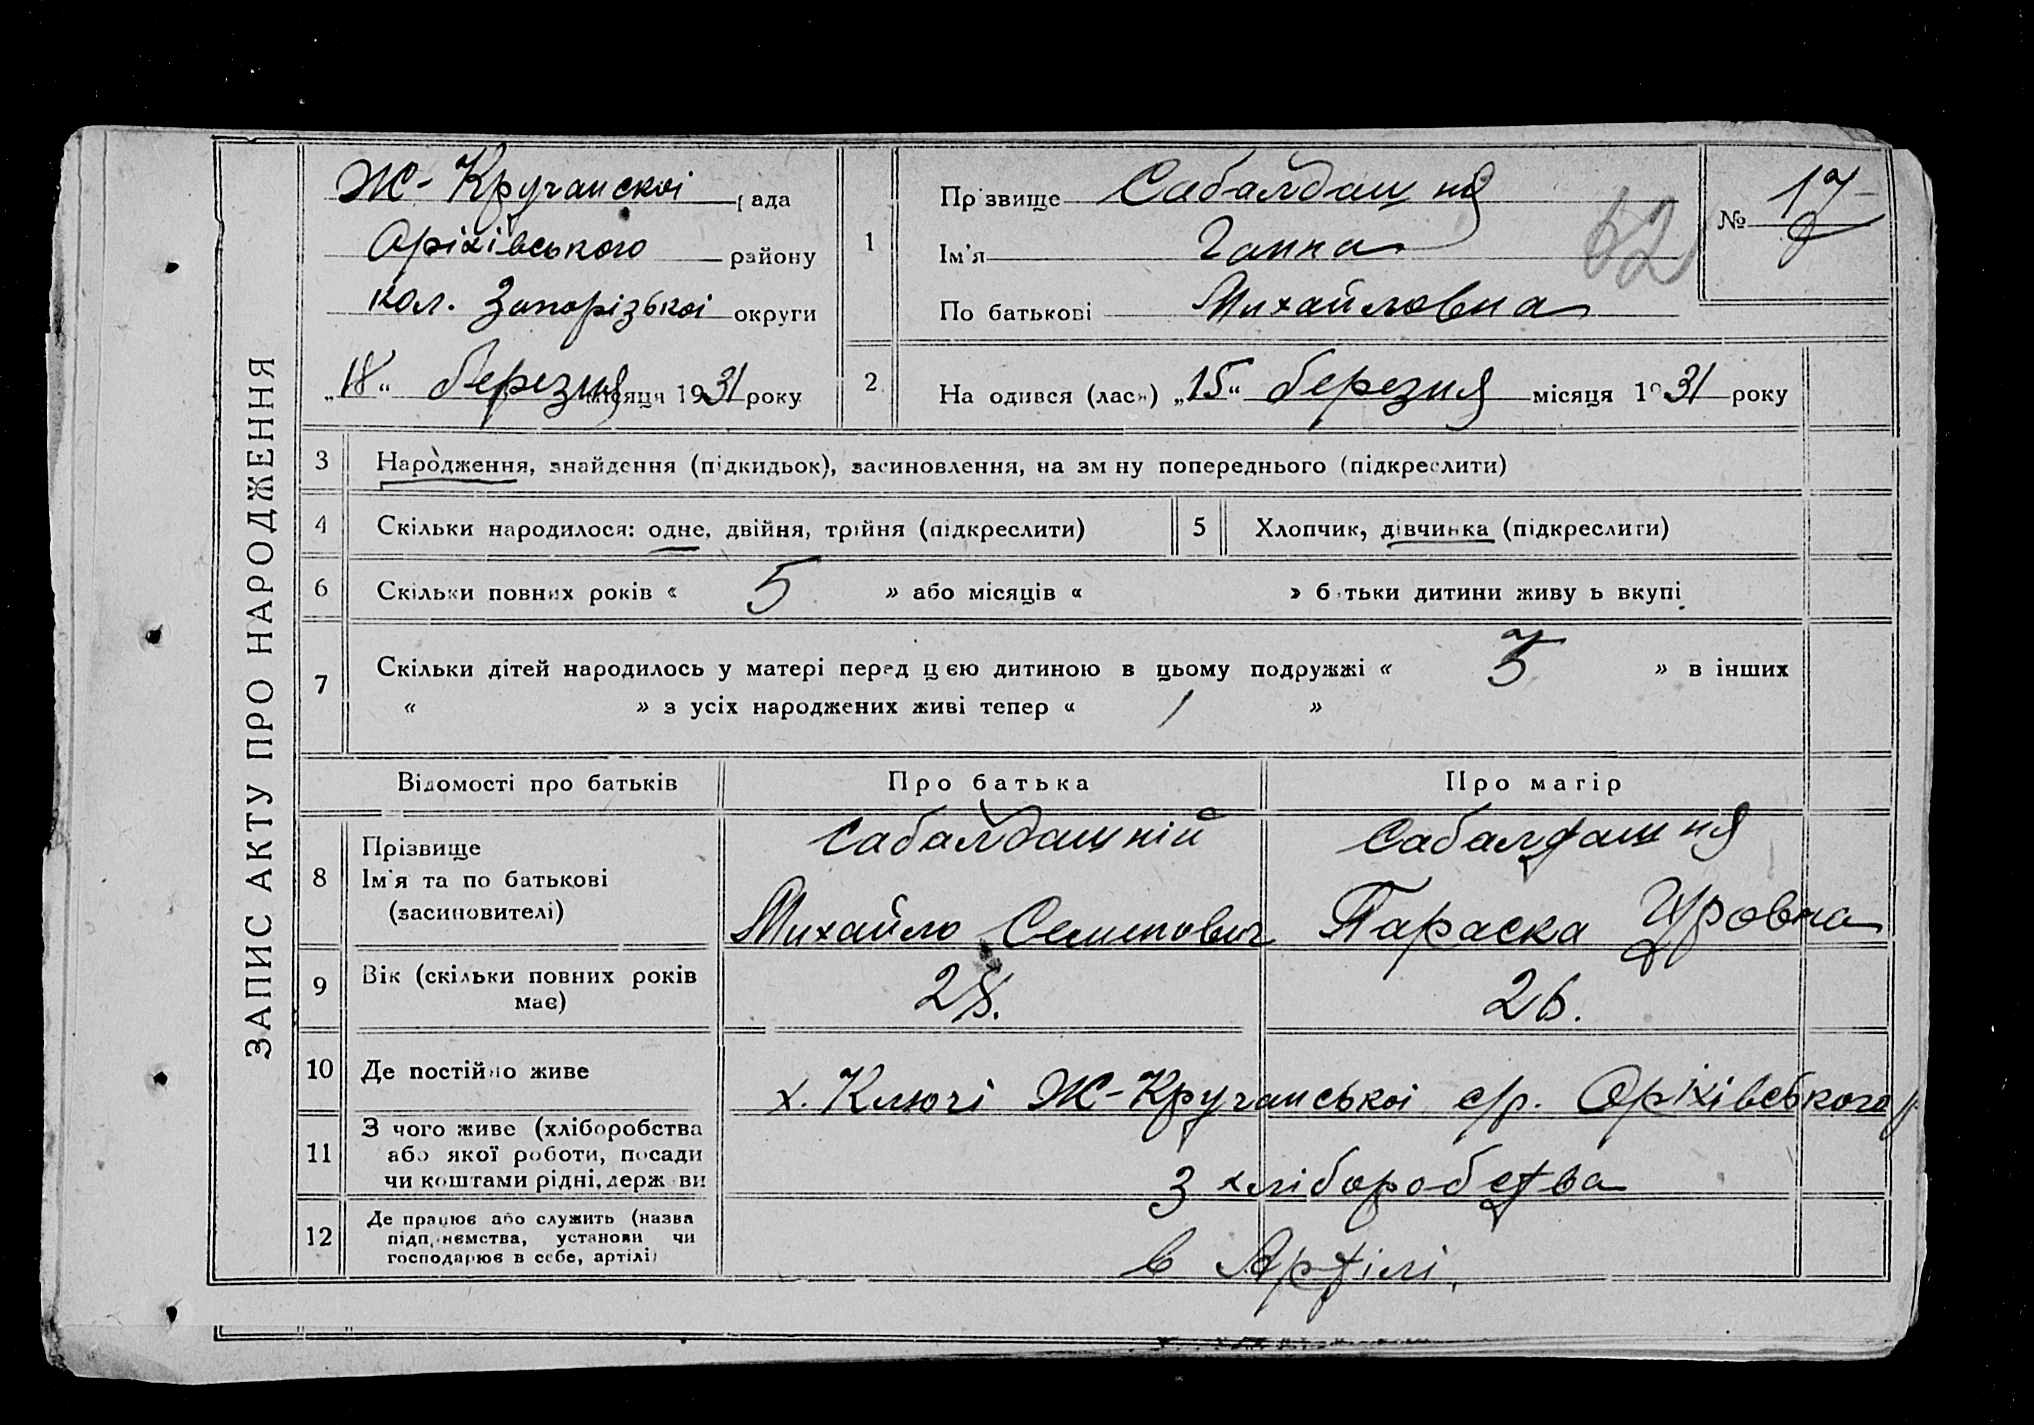 ЗАПИС АКТУ ПРО НАРОДЖЕННЯ
Ж-Кручанскоі рада
Оріхівського району
кол. Запорізькоі округи
„18“ березня місяця 1931 року
1
Прізвище Сабалдашня
Ім'я Ганна
По батькові Михайловна
62
№ 17
2 Народився (лась) „15“ березня місяця 1931 року
3 Народження, знайдення (підкидьок), засиновлення, на зміну попереднього (підкреслити)
4 Скільки народилося: одне, двійня, трійня (підкреслити) 5 Хлопчик, дівчинка (підкреслити)
6 Скільки повних років « 5 » або місяців « » батьки дитини живуть вкупі
7 Скільки дітей народилось у матері перед цією дитиною в цьому подружжі « » в інших
« » з усіх народжених живі тепер « 1 »
Відомості про батьків Про батька Про матір
8 Прізвище
Ім'я та по батькові
(засиновителі)
Сабалдашній
Михайло Семенович
Сабалдашня
Параска
9 Вік (скільки повних років
має)
28. 26.
10 Де постійно живе
х. Ключі Ж-Кручанськоі с/р. Оріхівського р.
11 З чого живе (хліборобства
або якої роботи, посади
чи коштами рідні, держави
З хліборобства
12 Де працює або служить (назва
підприємства, установи чи
господарює в себе, артілі)
в Артілі.